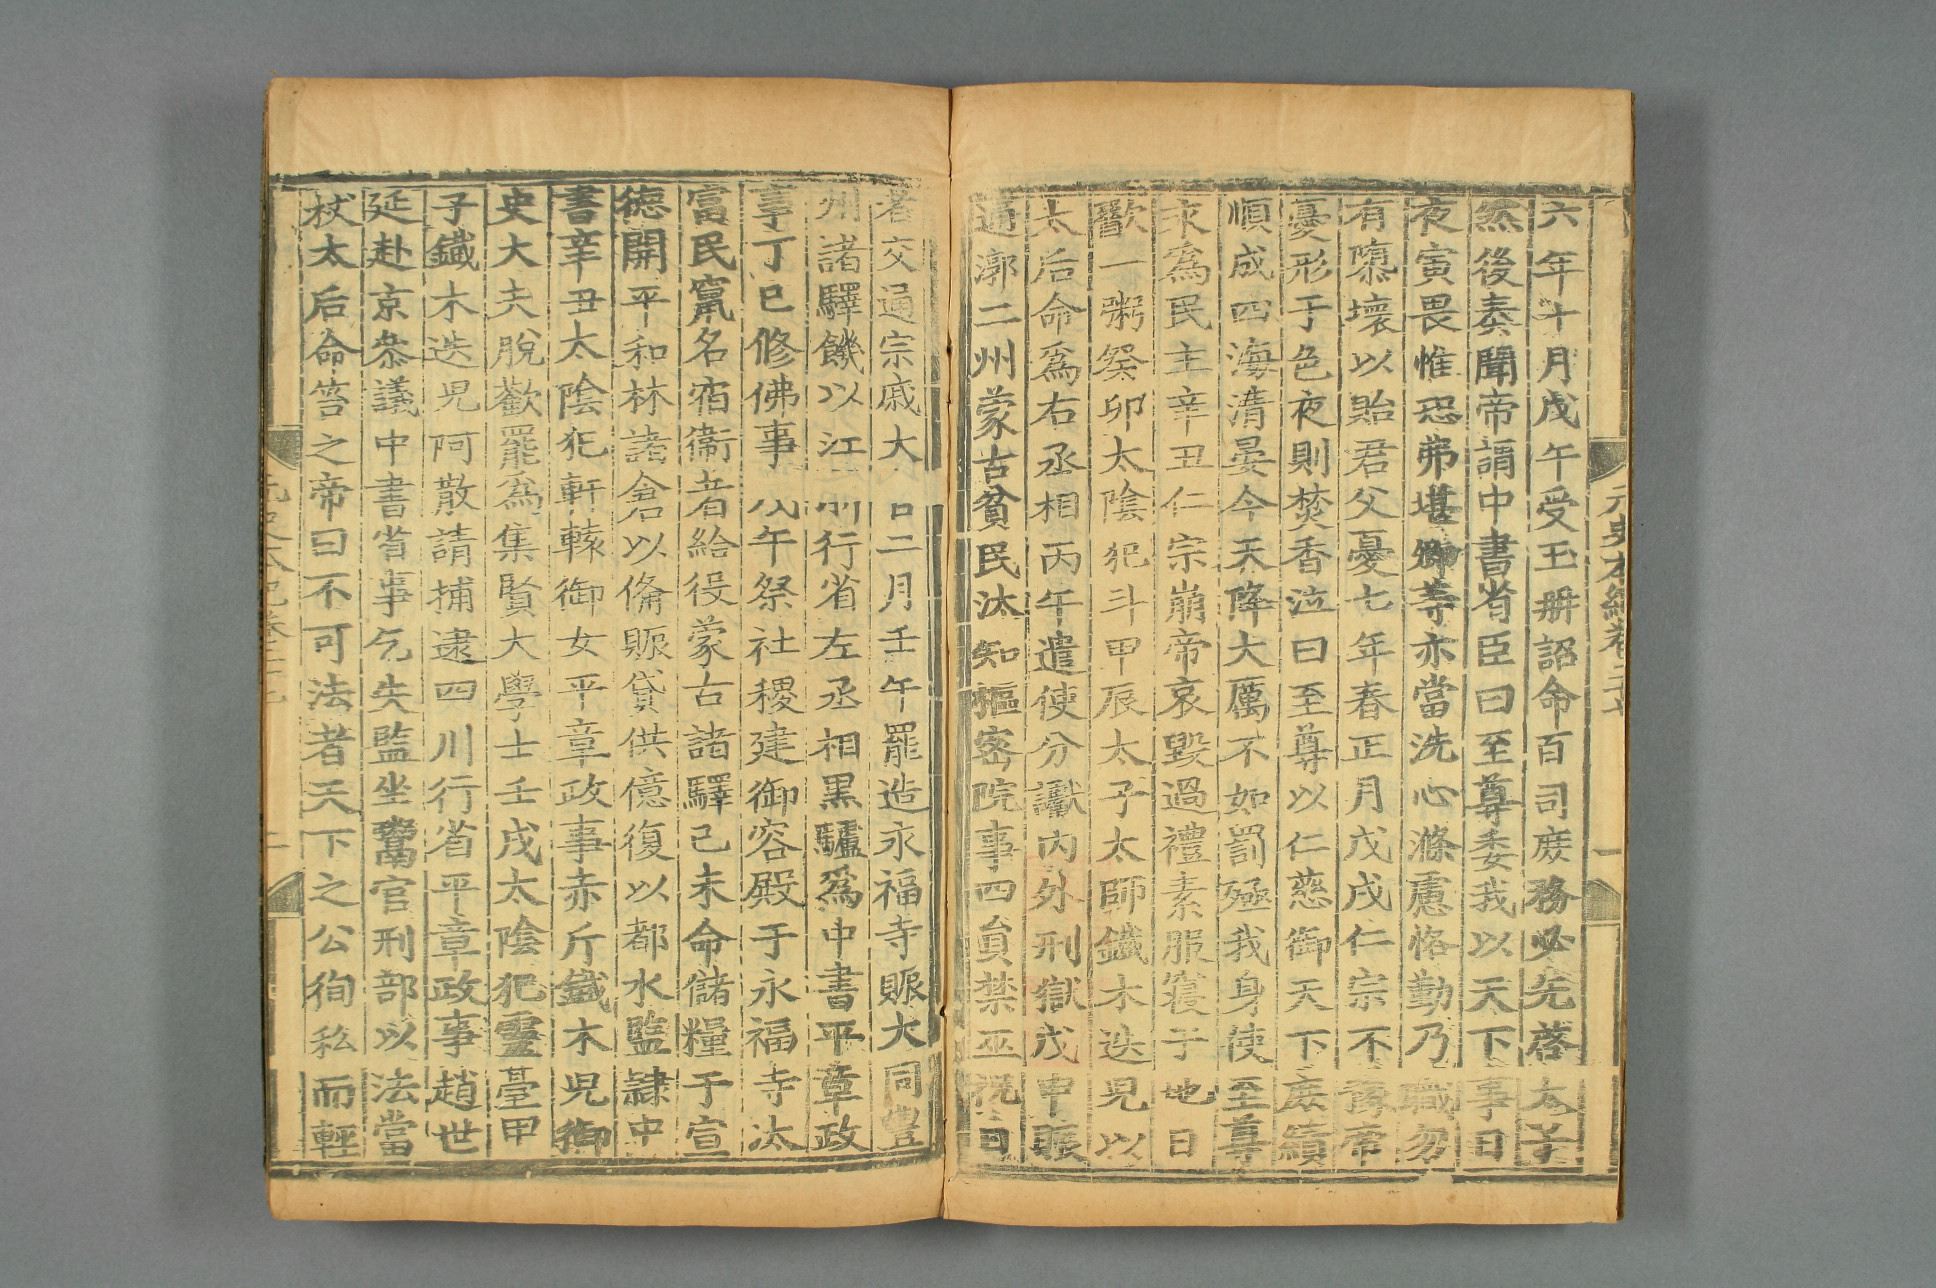 六年十月戊午受玉册詔命百司庶務必先啓太子
然後奏聞帝謂中書省臣曰至尊委我以天下事日
夜寅畏惟恐弗堪卿等亦當洗心滌慮恪勤乃職勿
有隳壞以貽君父憂七年春正月戊戌仁宗不豫帝
憂形于色夜則焚香泣曰至尊以仁慈御天下庶績
順成四海清晏今天降大厲不如罰殛我身使至尊
永爲民主辛丑仁宗崩帝哀毀過禮素服寢于地日
歠一粥癸卯太陰犯斗甲辰太子太師鐵木迭兒以
太后命爲右丞相丙午遣使分讞內外刑獄戊申賑
通漷二州蒙古貧民汰知樞密院事四員禁巫祝日
者交通宗戚大口二月壬午罷造永福寺賑大同豐
州諸驛饑以江 行省左丞相黑驢爲中書平章政
事丁巳修佛事 午祭社稷建御容殿于永福寺汰
富民竄名宿衞者給役蒙古諸驛己未命儲糧于宣
德開平和林諸倉以備賑貸供億復以都水監隷中
書辛丑太陰犯軒轅御女平章政事赤斤鐵木兒御
史大夫脫歡罷爲集賢大學士壬戌太陰犯靈臺甲
子鐵木迭兒阿散請捕逮四川行省平章政事趙世
延赴京參議中書省事乞失監坐鬻官刑部以法當
杖太后命笞之帝曰不可法者天下之公徇私而輕
元史本紀卷二十七 一
元史本紀卷二十七